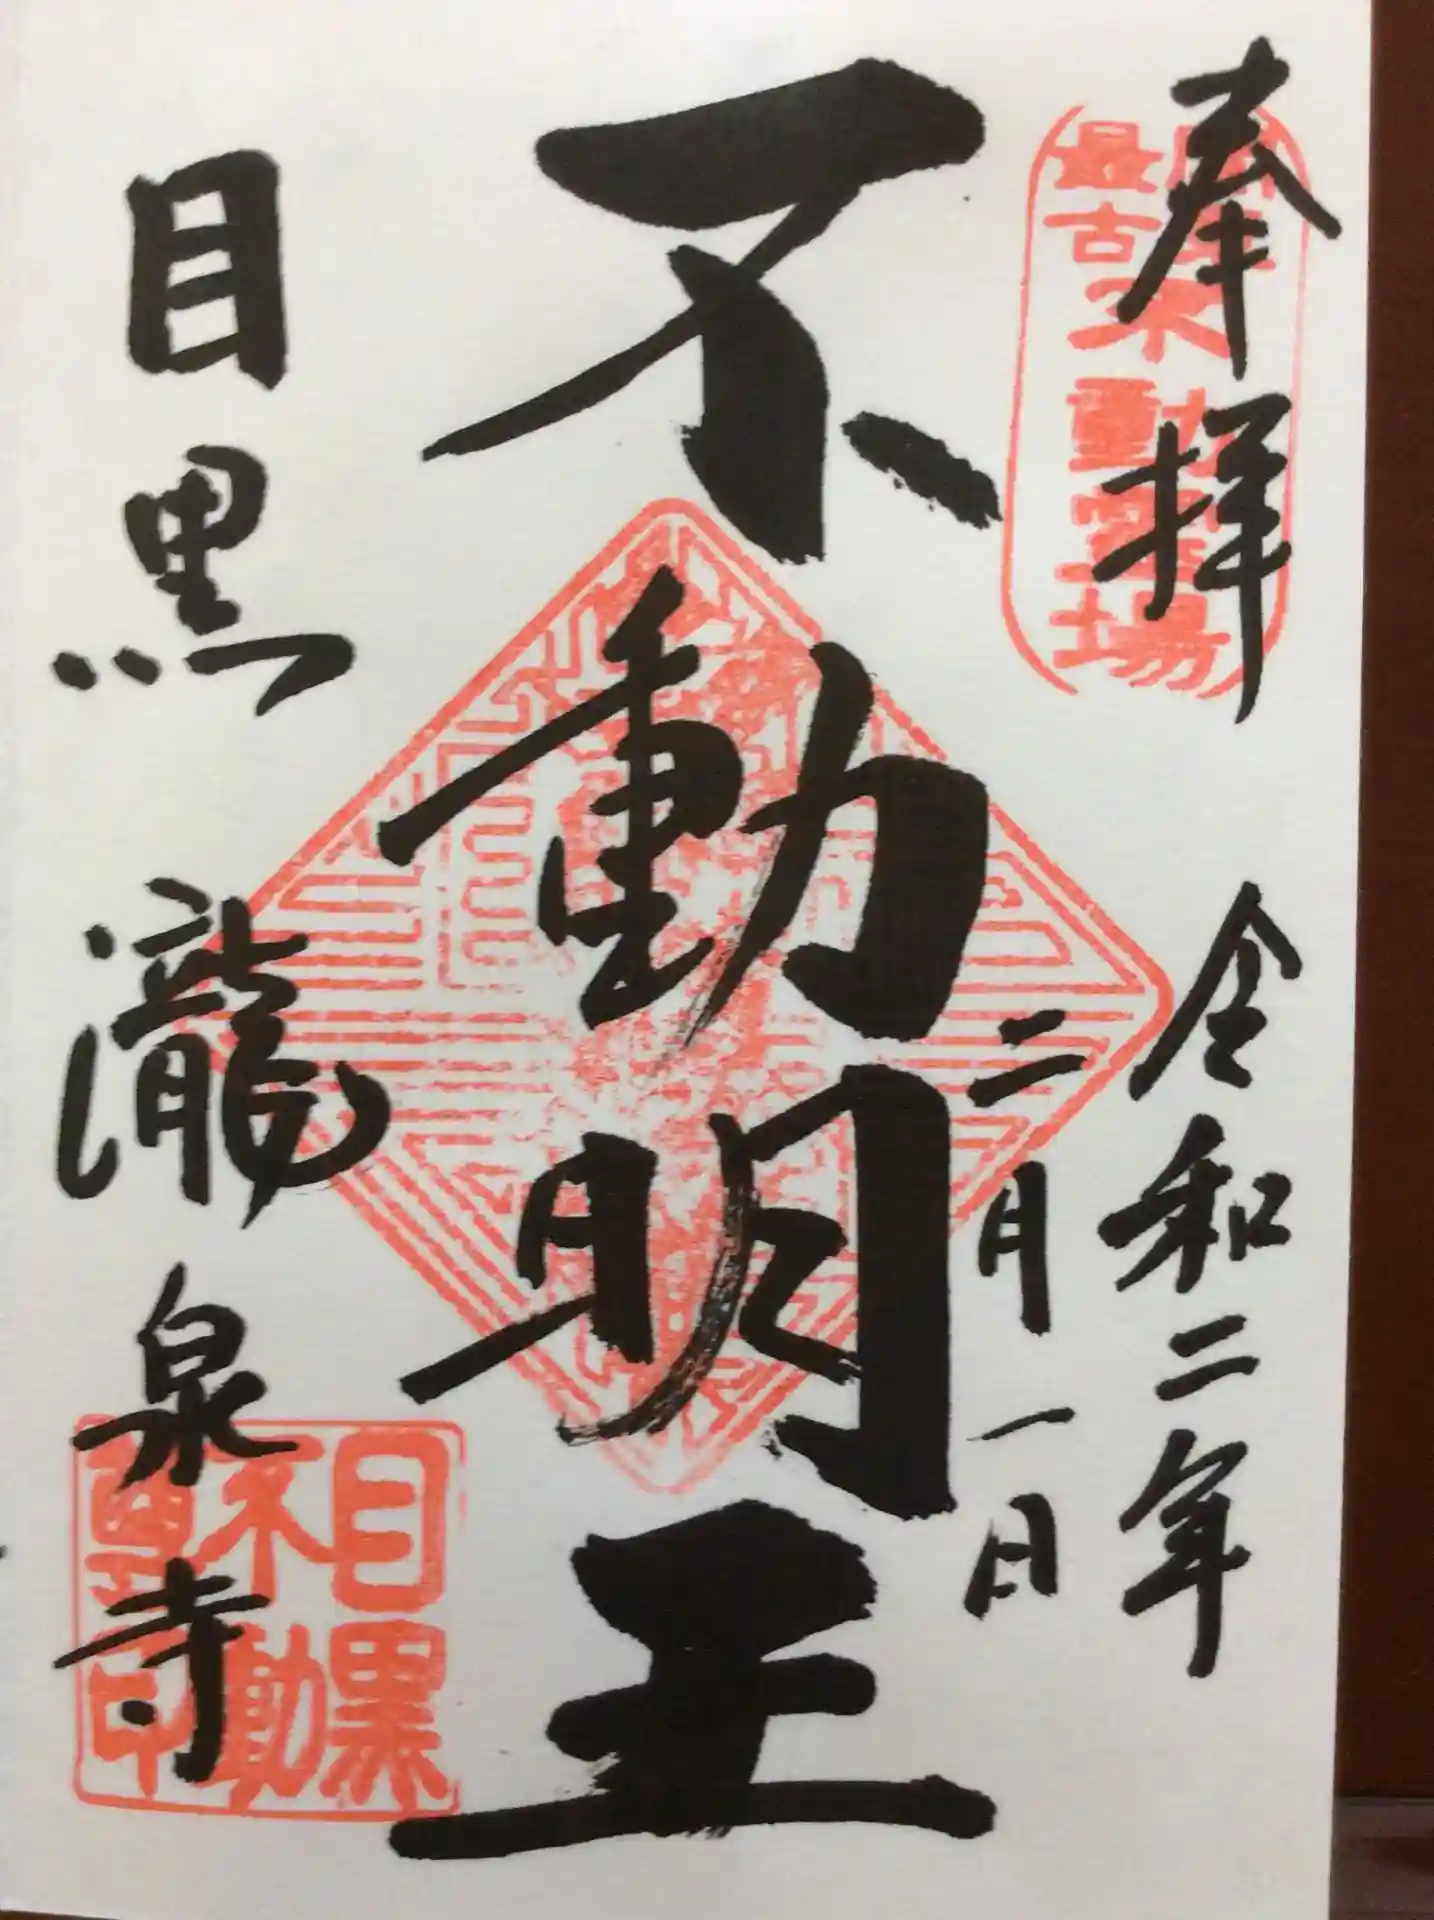 奉拝
令和二年
二月一日
不動明王
目黒
瀧泉寺
最古不動霊場
目黒
不動
尊印